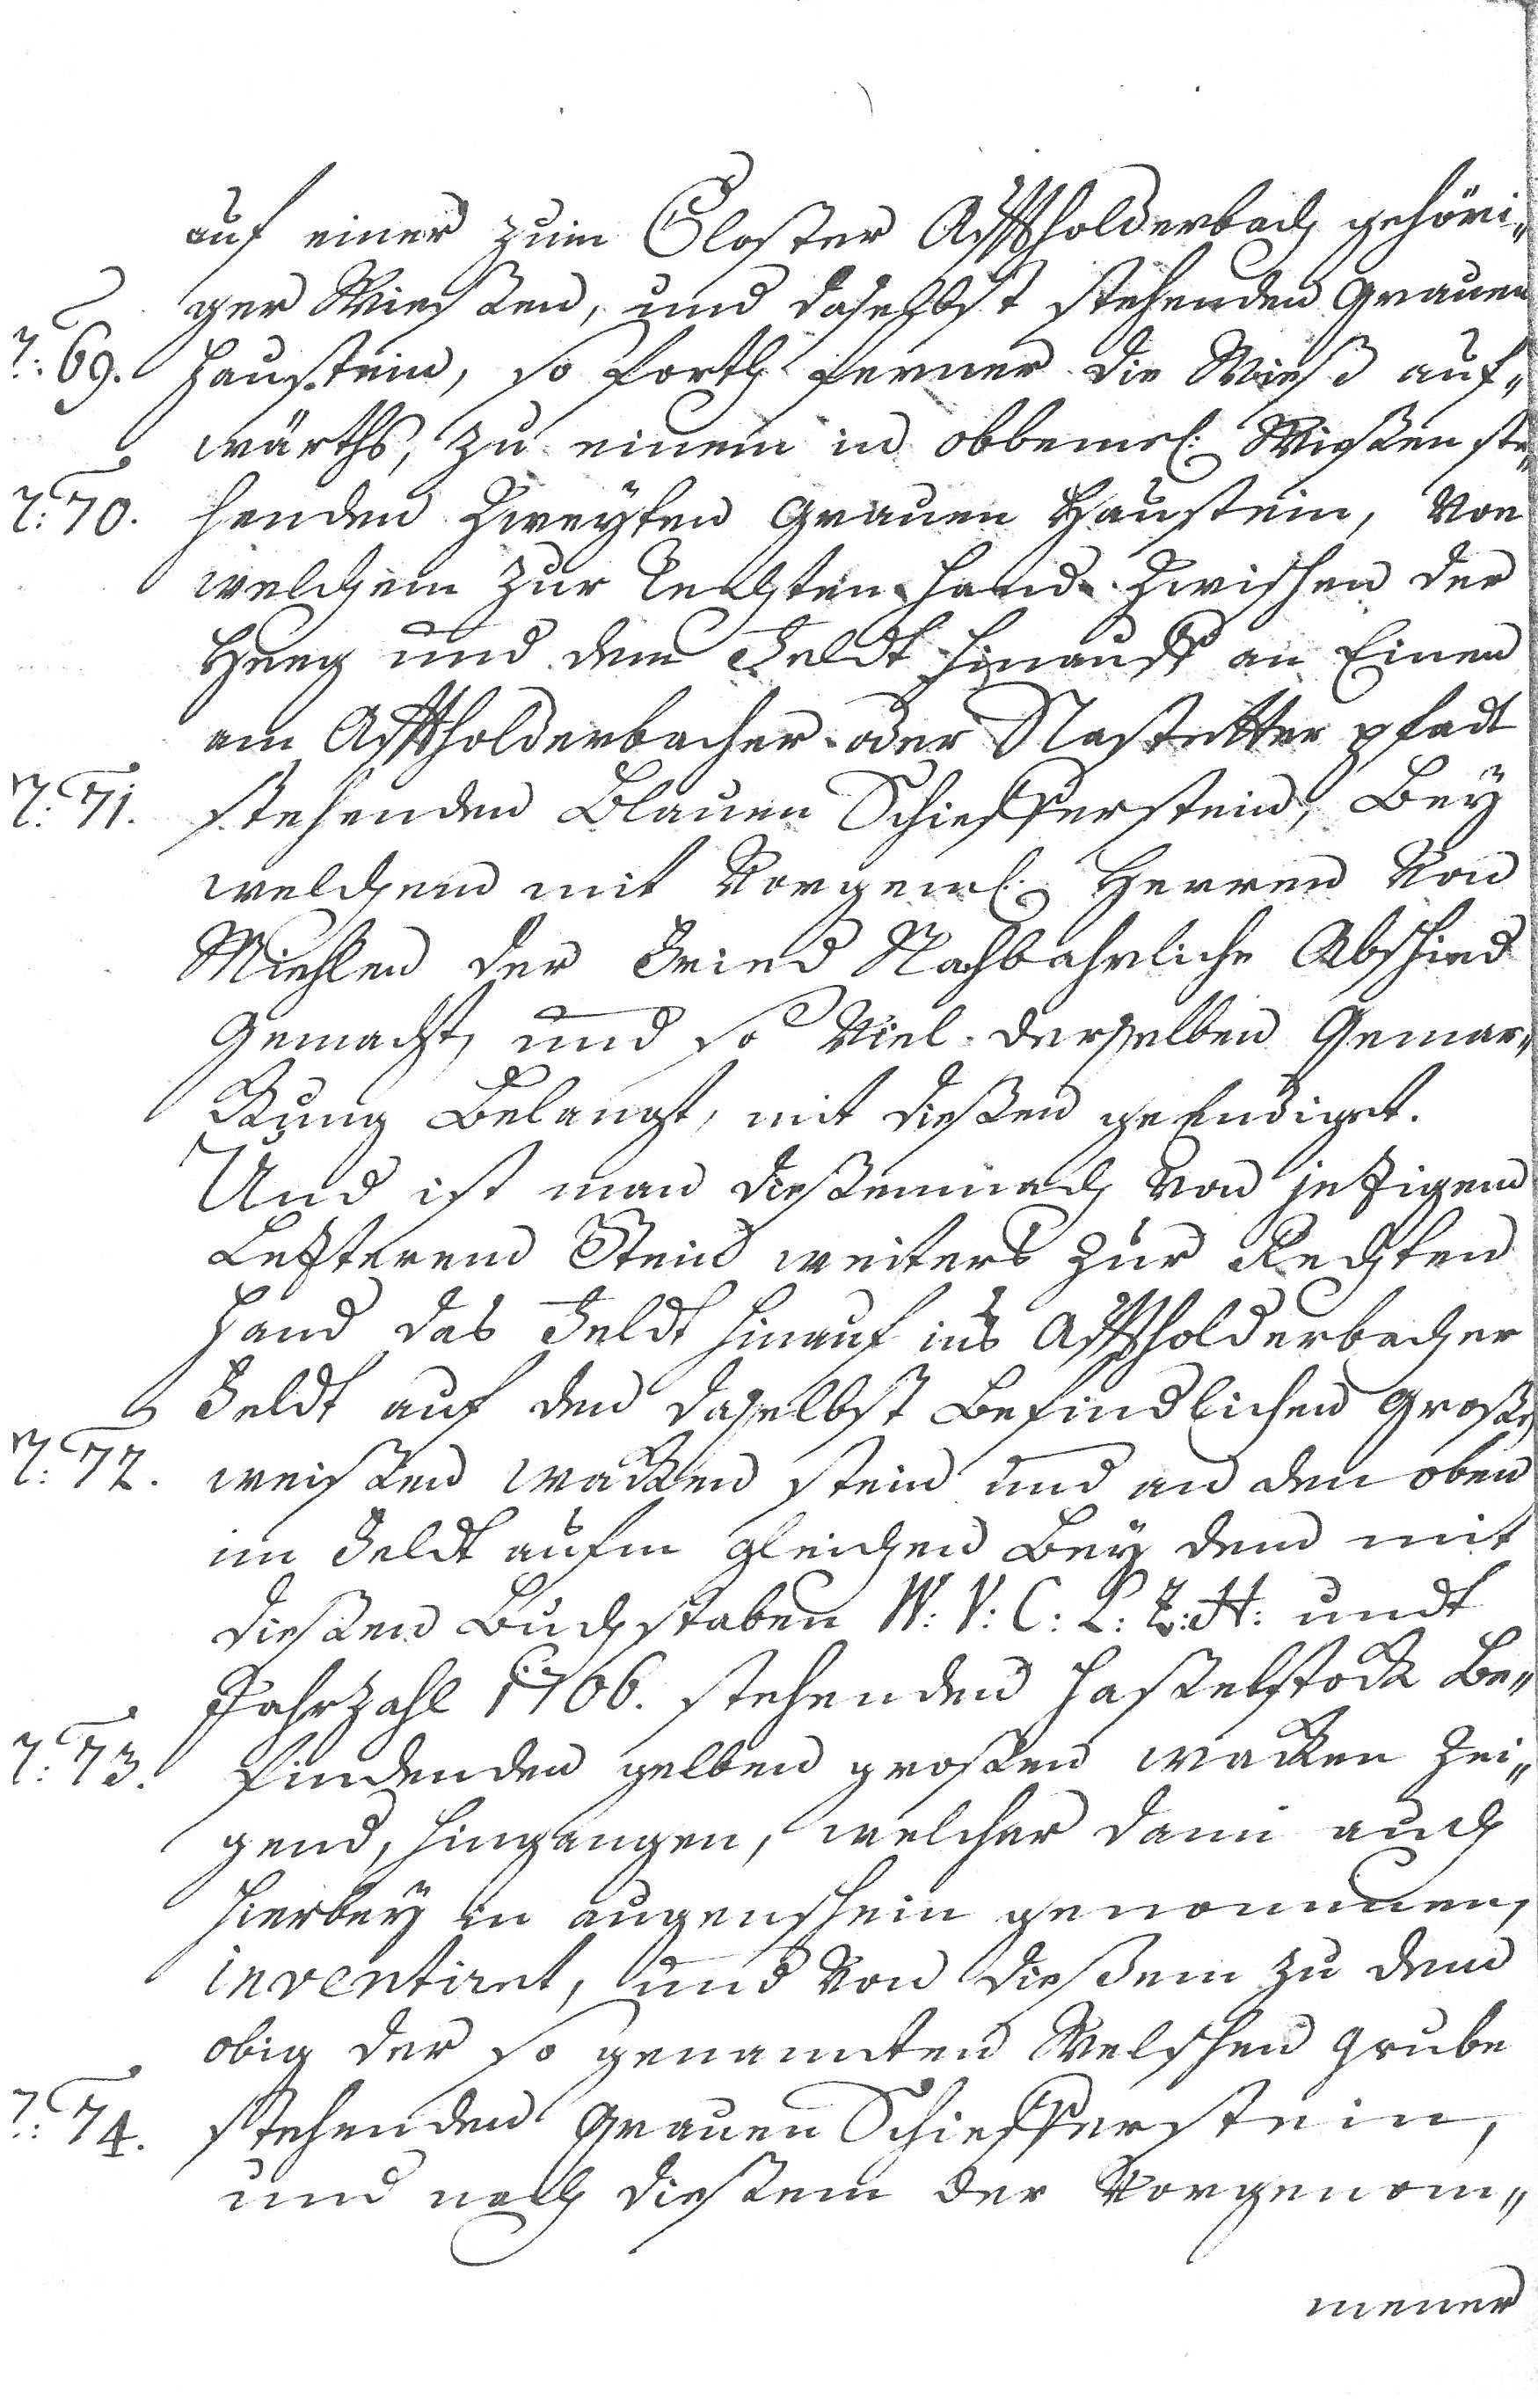 auf einer zum Closter Affholderbach gehöri„
ger Wießen, und daselbst stehenden Grauen
N: 69. Haustein, so forth ferner die Wieß auf„
wärths, zu einem in obbeml: Wießen ste„
N: 70. henden Zweyten Grauen Haustein, Von
welchem zur Rechten Hand zwischen der
Heeg und dem Feldt hinauß an Einen
am Affholderbacher oder Nastetter pfadt
N: 71. stehenden Blauen Schiefferstein, Bey
welchem mit Vorgeml: Herren Von
Miehlen der Fried Nachbahrliche Abschied
Gemacht, und so Viel derselben Gemar„
ckung Belangt, mit dießen geEndiget.
Und ist man dießemnach Von jetzigem
Letzterem Stein weiters zur Rechten
Hand das Feldt hinauf ins Affholderbacher
Feldt auf den daselbst Befindlichen Großen
N: 72. weißen wacken stein und an den oben
im Feldt aufm gleichen Bey dem mit
dießen Buchstaben W: V: C: L: Z: H: undt
Jahrzahl 1706. stehenden Hastelstock Be„
N: 73. findenden gelben großen wacken Zei„
gend, hingangen, welcher dann auch
hierbey in augenschein genommen,
inventirt, und Von dießem zu dem
obig der so genannten Welschen grube
N: 74. stehenden Grauen Schiefferstein,
und nach dießem der Vorgenom„
mener